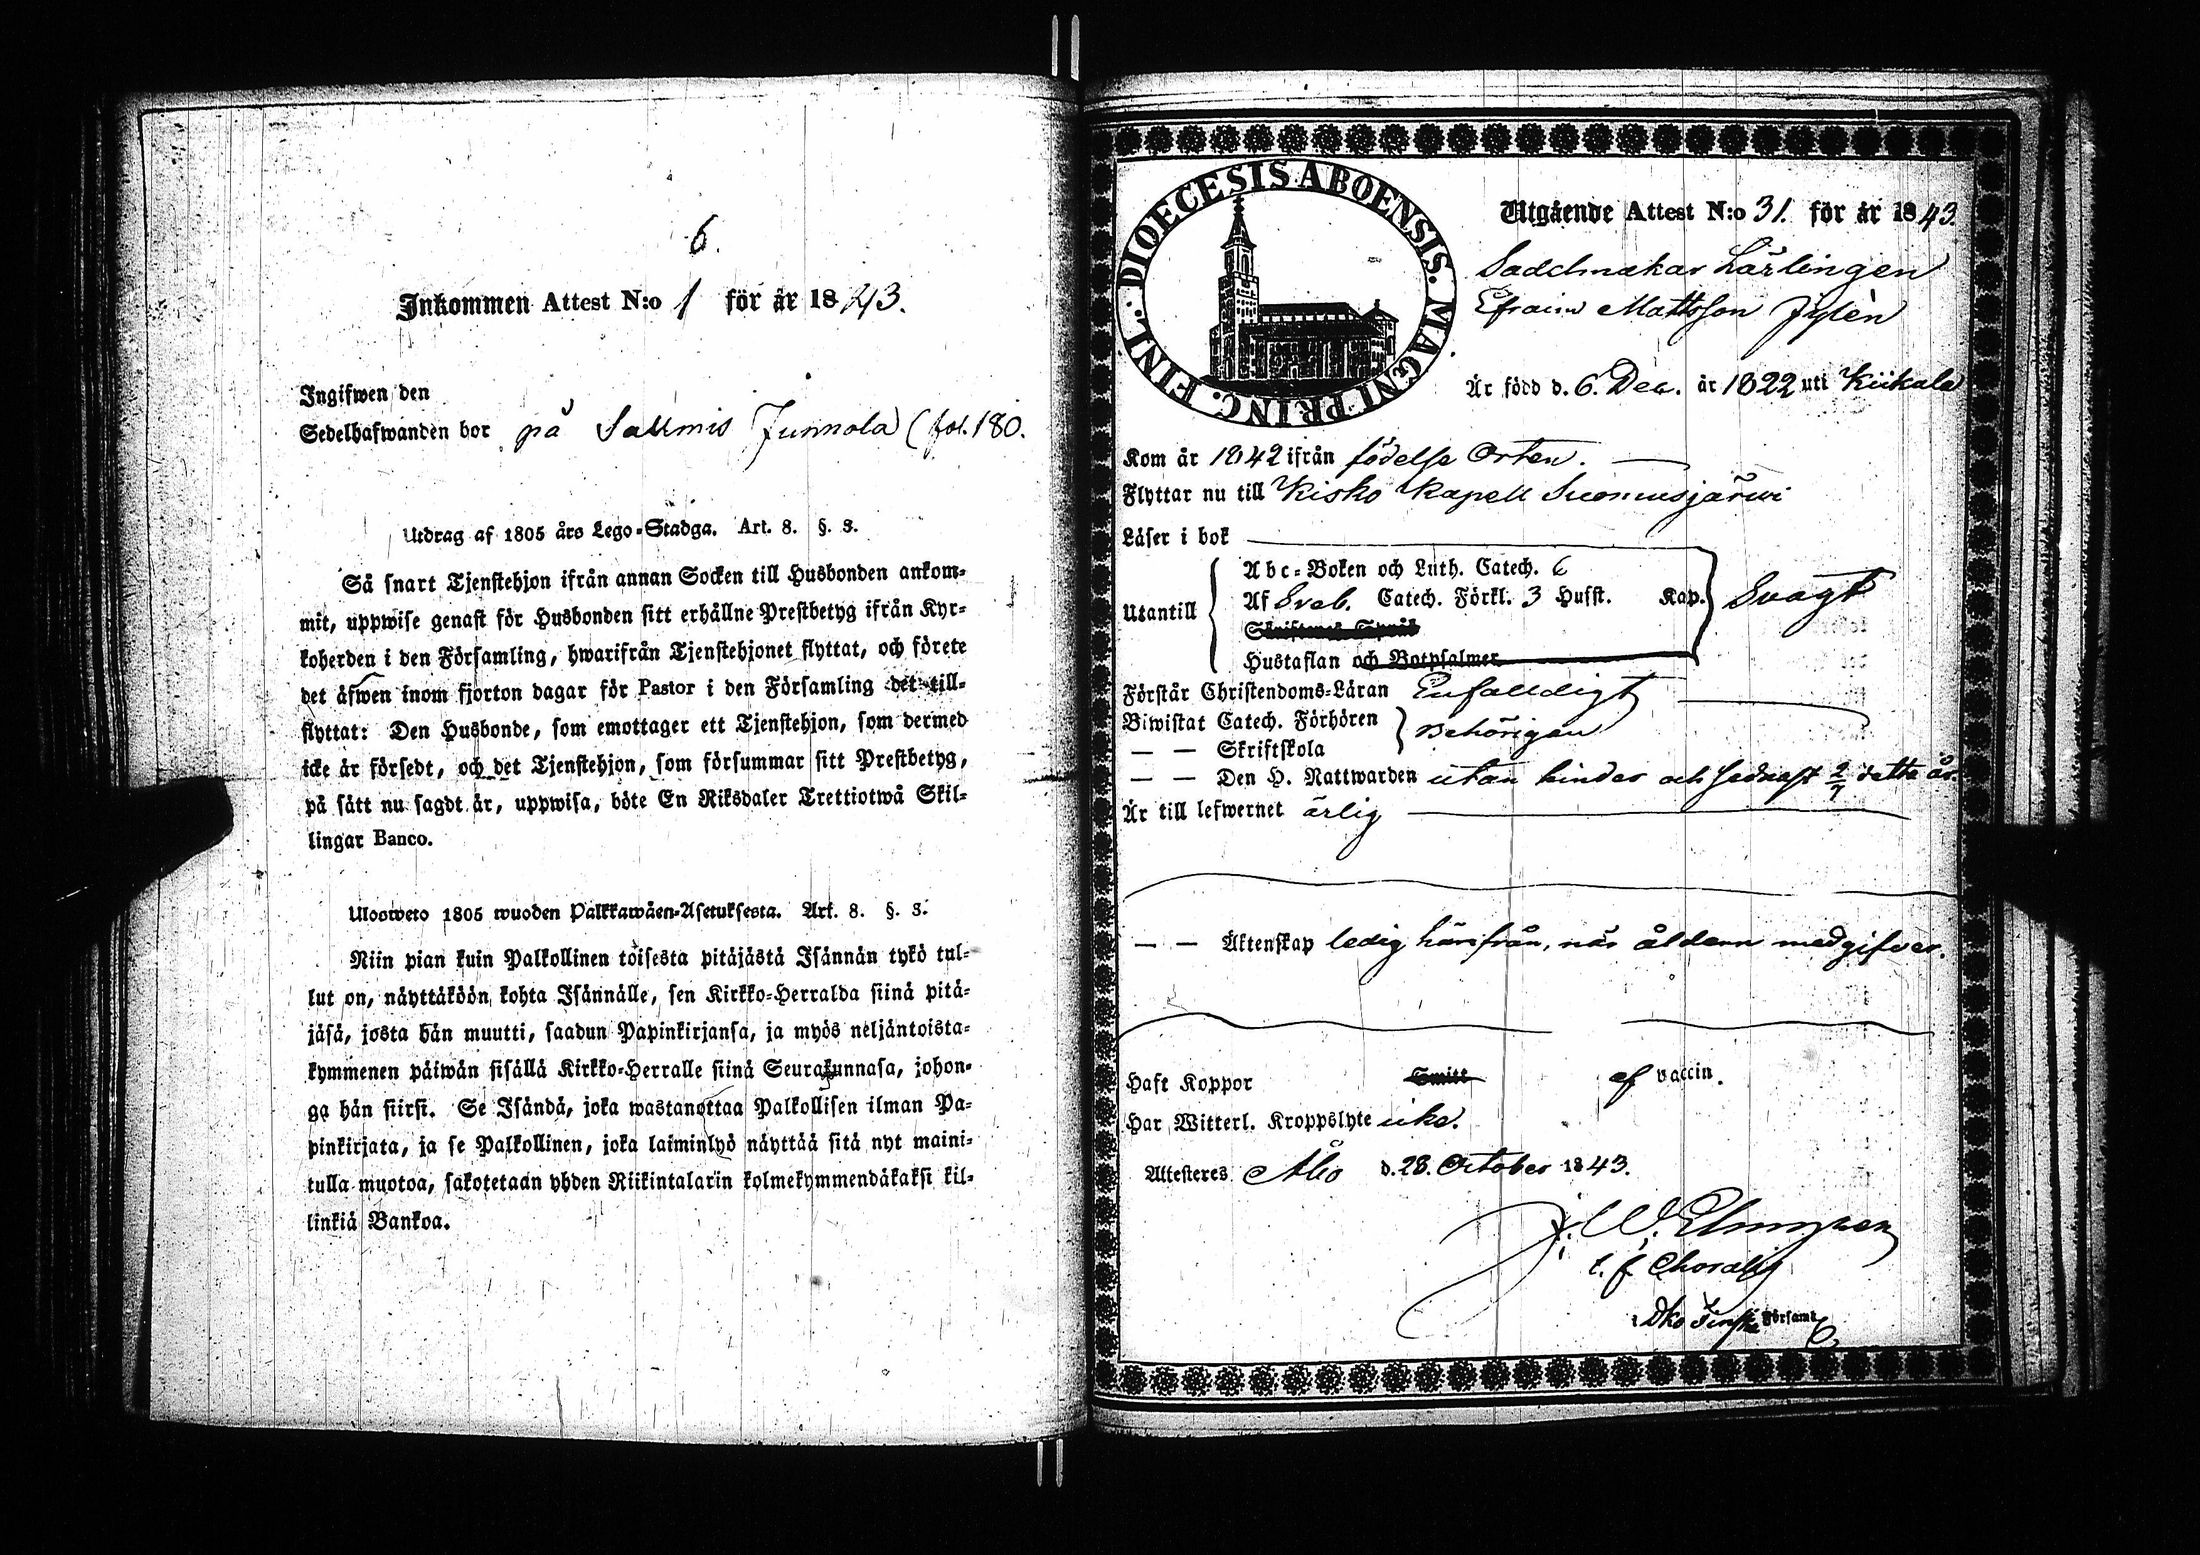 6.
Inkommen Attest N:o 1 för år 1843.
Ingifwen den
Sedelhafwanden bor på Salmis Junnola (fol. 180.
Utdrag af 1805 års Lego-Stadga. Art. 8. §. 3.
Så snart Tjenstehjon ifrån annan Socken till Husbonden ankom-
mit, uppwise genast för Husbonden sitt erhållne Prestbetyg ifrån Kyr-
koherden i den Församling, hwarifrån Tjenstehjonet flyttat, och förete
det äfwen inom fjorton dagar för Pastor i den Församling det till-
flyttat: Den Husbonde, som emottager ett Tjenstehjon, som dermed
icke är försedt, och det Tjenstehjon, som försummar sitt Prestbetyg,
på sätt nu sagdt är, uppwisa, böte En Riksdaler Trettiotwå Skil-
lingar Banco.
Ulosweto 1805 wuoden Palkkawäen-Asetuksesta. Art. 8. §. 3.
Niin pian kuin Palkollinen toisesta pitäjästä Isännän tykö tul-
lut on, näyttäköön kohta Isännälle, sen Kirkko-Herralda siinä pitä-
jäsä, josta hän muutti, saadun Papinkirjansa, ja myös neljäntoista-
kymmenen päiwän sisällä Kirkko-Herralle siinä Seurakunnasa, johon-
ga hän siirsi. Se Isändä, joka wastanottaa Palkollisen ilman Pa-
pinkirjata, ja se Palkollinen, joka laiminlyö näyttää sitä nyt maini-
tulla muotoa, sakotetaan yhden Riikintalarin kolmekymmendäkaksi kil-
linkiä Bankoa.
DIOECESIS ABOENSIS. MAGNI PRINC. FINL.
Utgående Attest N:o 31. för år 1843.
Sadelmakar Lärlingen
Efraim Mattsson Jylèn
Är född d. 6. Dec. år 1822 uti Kiikala
Kom år 1842 ifrån födelse Orten.
Flyttar nu till Kisko Kapell Suomusjärwi
Läser i bok
Abc-Boken och Luth. Catech. 6
Utantill Af Sveb. Catech. Förkl. 3 Husst. Kap. Svagt
Skriftenes Språk
Hustaflan och Botpsalmer
Förstår Christendoms-Läran Enfalldigt
Biwistat Catech. Förhören
— — Skriftskola Behörigen
— — Den H. Nattwarden utan hinder och sednast 2/7 detta år.
Är till lefwernet ärlig
— — Äktenskap ledig härifrån, när åldern medgifver.
Haft Koppor Smitt af vaccin.
Har Witterl. Kroppslyte icke.
Attesteres Åbo d. 28. October 1843.
t. f.
Församl.